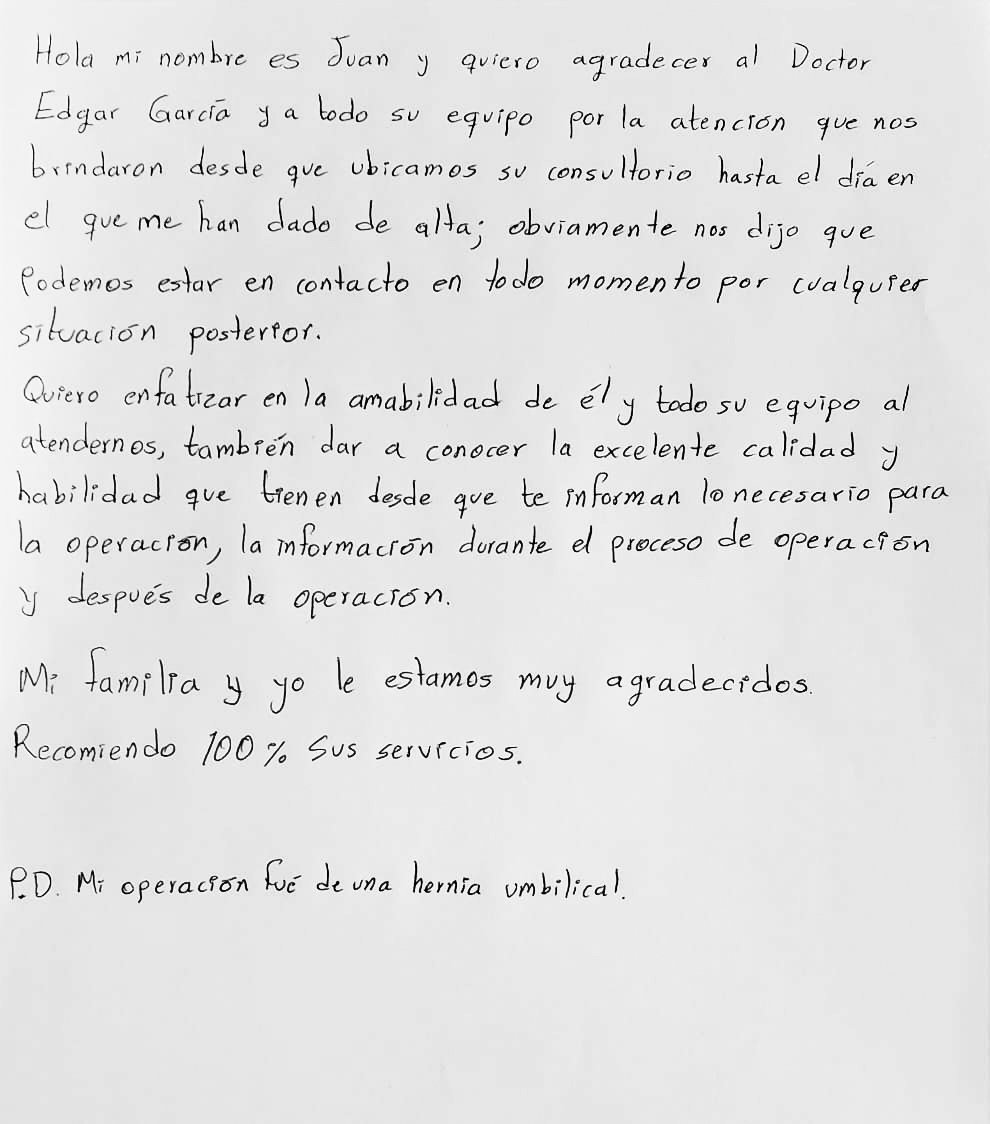 Hola mi nombre es Juan y quiero agradecer al Doctor
Edgar García y a todo su equipo por la atención que nos
brindaron desde que ubicamos su consultorio hasta el día en
el que me han dado de alta; obviamente nos dijo que
Podemos estar en contacto en todo momento por cualquier
situación posterior.
Quiero enfatizar en la amabilidad de él y todo su equipo al
atendernos, también dar a conocer la excelente calidad y
habilidad que tienen desde que te informan lo necesario para
la operación, la información durante el proceso de operación
y después de la operación.
Mi familia y yo le estamos muy agradecidos.
Recomiendo 100% Sus servicios.
P.D. Mi operación fué de una hernia umbilical.